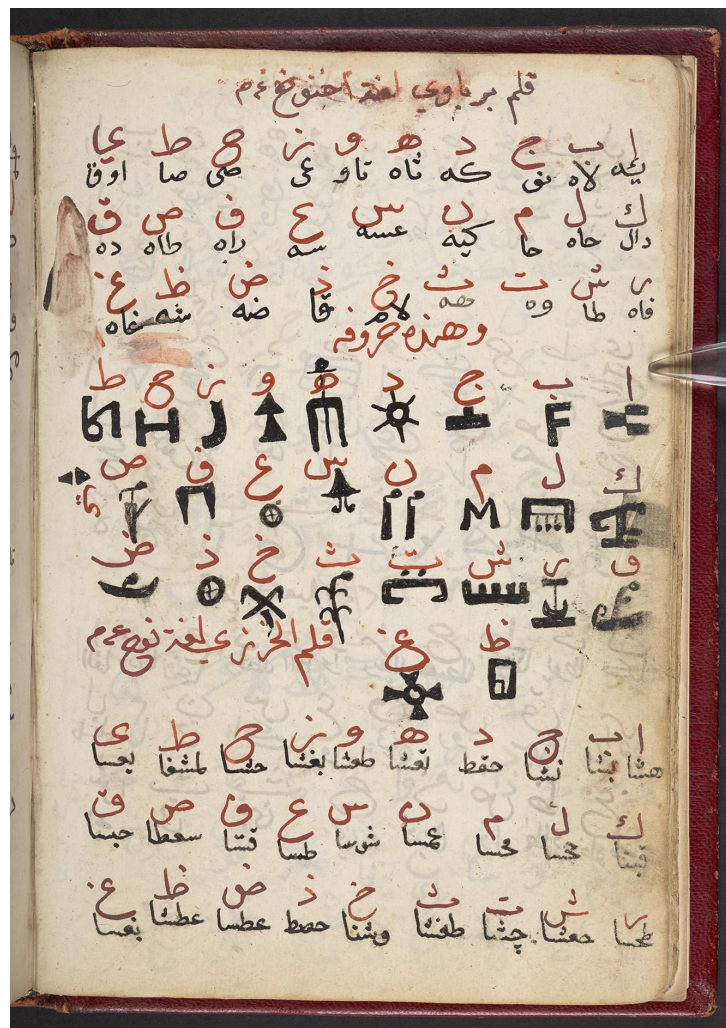 قلم برباوي لغة اخنوخ ع م
ا ب ج د ه و ز ح ط ي
يكه لاه نق كه ثاه تاو عى صى صا اوق
ك ل م ن س ع ف ص ق
دال حاه حا كيه عسه سه راه طاه ده
ر ش ت ث خ ذ ض ظ غ
فاه طا وه هه لام قا ضه شه غاه
وهذه حروفه
ا ب ج د ه و ز ح ط
ك ل م ن س ع ف ص ي
ق ر ش ت ث خ ذ ض
ظ غ
قلم الخرزي لغة نوح ع م
ا ب ج د ه و ز ح ط ي
هشا بشا نشا حفط تعشا طعشا بغشا حشسا لمشفا بعسا
ك ل م ن س ع ف ص ق
محسا محسا عمسا شوسا طسا قشا سعطا حبسا
ر ش ت ث خ ذ ض ظ غ
طحسا حعشا چشا طغشا وشنا حصط عطسا عطشا بعسا